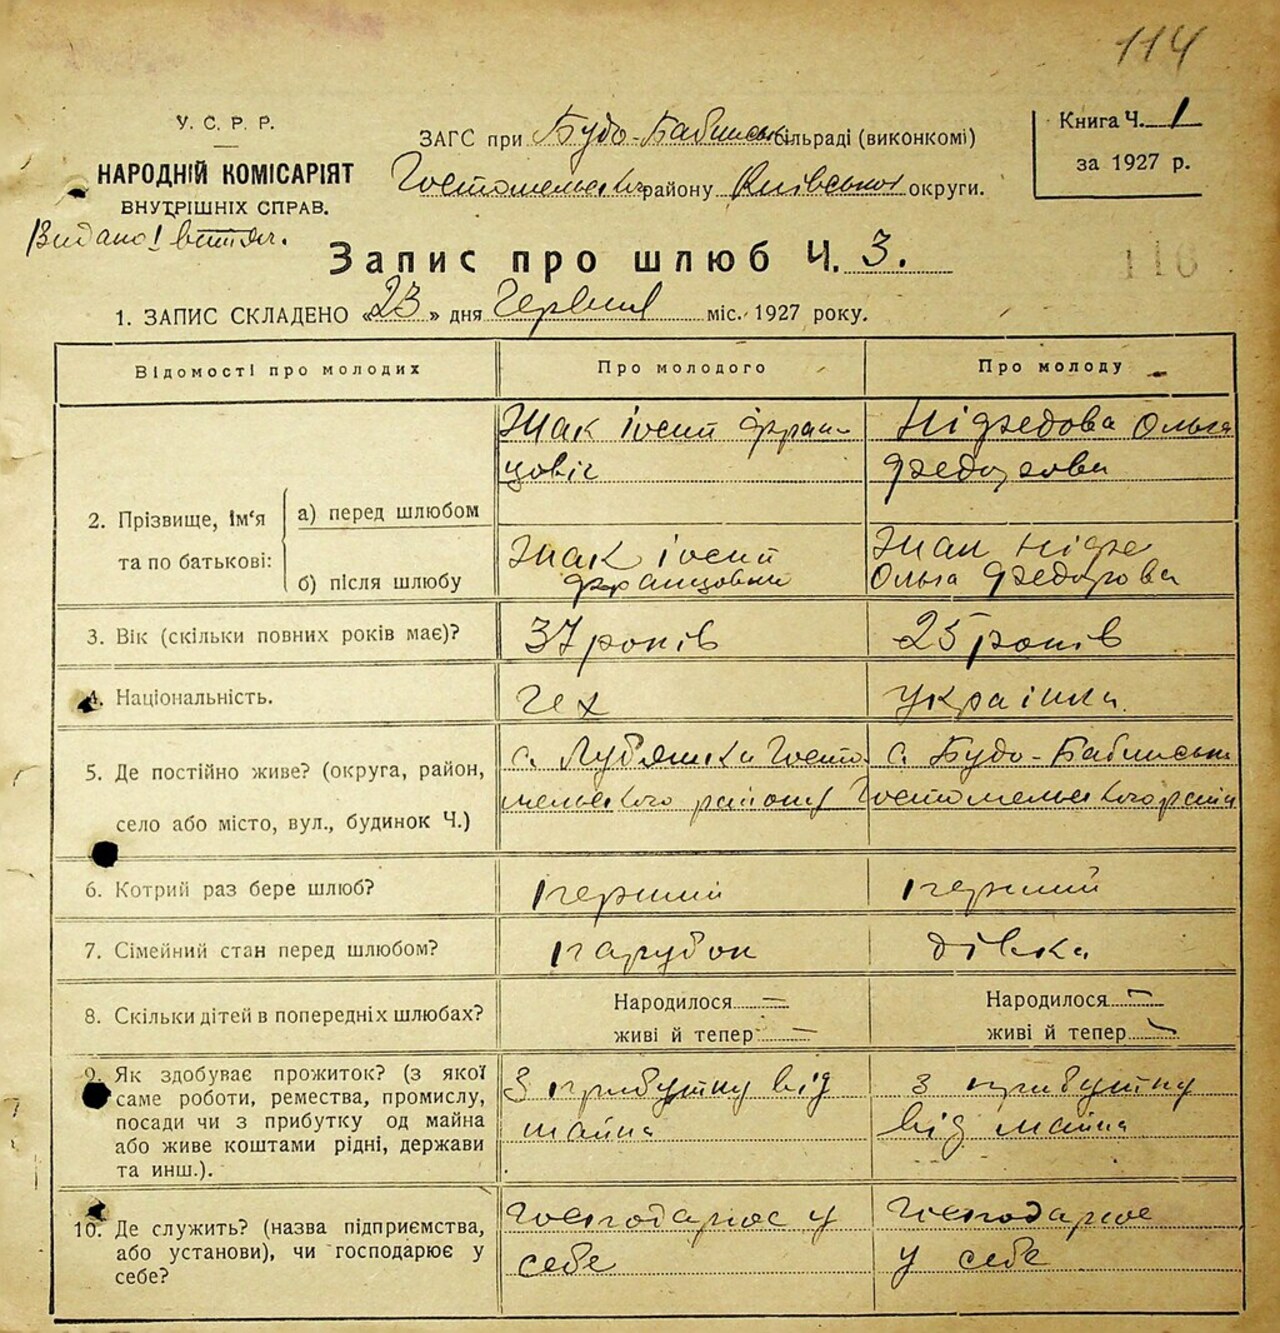 114
У. С. Р. Р.
НАРОДНІЙ КОМІСАРІЯТ
ВНУТРІШНІХ СПРАВ.
Видано 1 витяг.
ЗАГС при Будо-Бабинській сільраді (виконкомі)
Гостомельського району Київської округи.
Книга Ч. 1
за 1927 р.
Запис про шлюб Ч. 3.
116
1. ЗАПИС СКЛАДЕНО «23» дня Червня міс. 1927 року.
Відомості про молодих
Про молодого
Про молоду
2. Прізвище, ім‘я та по батькові:
а) перед шлюбом
Жак Іосип Фран-
цовіч
Ольга
Федорова
б) після шлюбу
Жак Іосип
Францович
Жак
Ольга Федорова
3. Вік (скільки повних років має)?
37 років
25 років
4. Національність.
Чех
Українка.
5. Де постійно живе? (округа, район,
село або місто, вул., будинок Ч.)
с. Лубянка Госто-
мельського району
с. Будо-Бабинськ
Гостомельського рай
6. Котрий раз бере шлюб?
перший
перший
7. Сімейний стан перед шлюбом?
парубок
дівка
8. Скільки дітей в попередніх шлюбах?
Народилося —
живі й тепер —
Народилося —
живі й тепер —
9. Як здобуває прожиток? (з якої
саме роботи, ремества, промислу,
посади чи з прибутку од майна
або живе коштами рідні, держави
та инш.).
З прибутку від
майна
З прибутку
від майна
10. Де служить? (назва підприємства,
або установи), чи господарює у
себе?
Господарює у
себе
Господарює
у себе